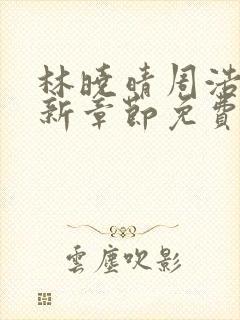 林曉晴周浩
新章節免費
雲塵吹影